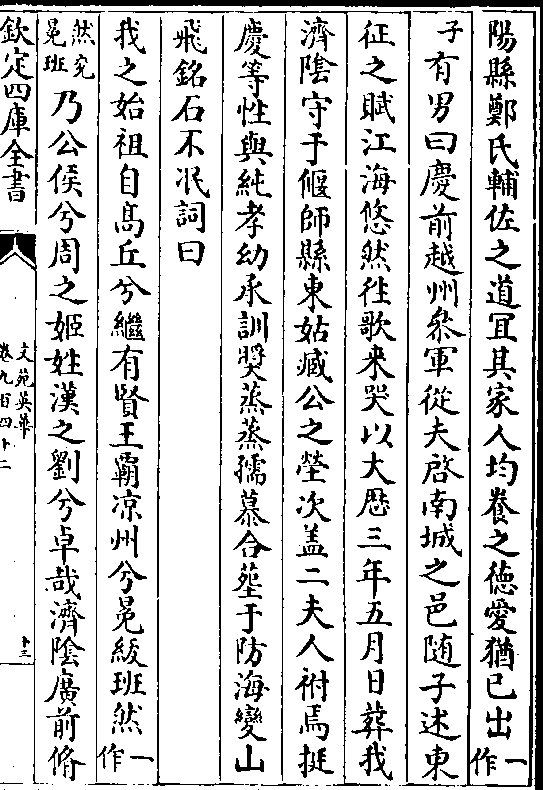 陽縣鄭氏輔佐之道冝其家人均養之徳愛猶已出一作
子有男曰慶前越州叅軍從夫啓南城之邑随子述東
征之賦江海悠然徃歌来哭以大厯三年五月日葬我
濟隂守于偃師縣東姑臧公之塋次盖二夫人祔焉挺
慶等性與純孝幼承訓奬蒸蒸孺慕合塟于防海變山
飛銘石不冺詞曰
我之始祖自髙丘兮繼有賢王霸凉州兮冕紱班然一作
然究
冕班乃公侯兮周之姬姓漢之劉兮卓哉濟隂廣前脩
欽定四庫全書
文苑英華
卷九百四十二
十三